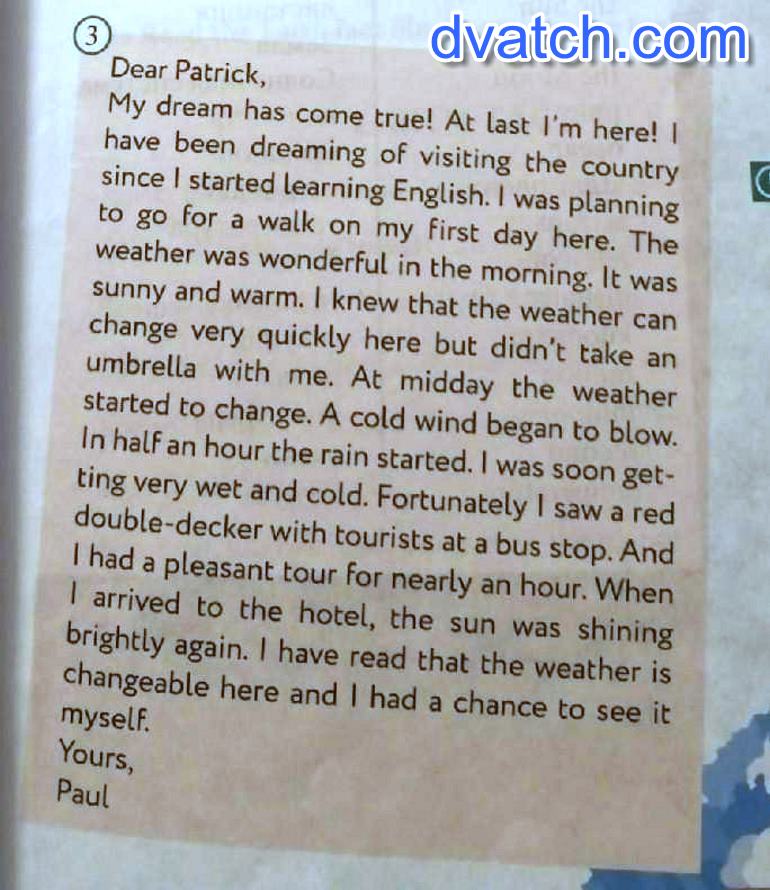 dvatch.com
3
Dear Patrick,
My dream has come true! At last I'm here! I
have been dreaming of visiting the country
since I started learning English. I was planning
to go for a walk on my first day here. The
weather was wonderful in the morning. It was
sunny and warm. I knew that the weather can
change very quickly here but didn't take an
umbrella with me. At midday the weather
started to change. A cold wind began to blow.
In half an hour the rain started. I was soon get-
ting very wet and cold. Fortunately I saw a red
double-decker with tourists at a bus stop. And
I had a pleasant tour for nearly an hour. When
I arrived to the hotel, the sun was shining
brightly again. I have read that the weather is
changeable here and I had a chance to see it
myself.
Yours,
Paul